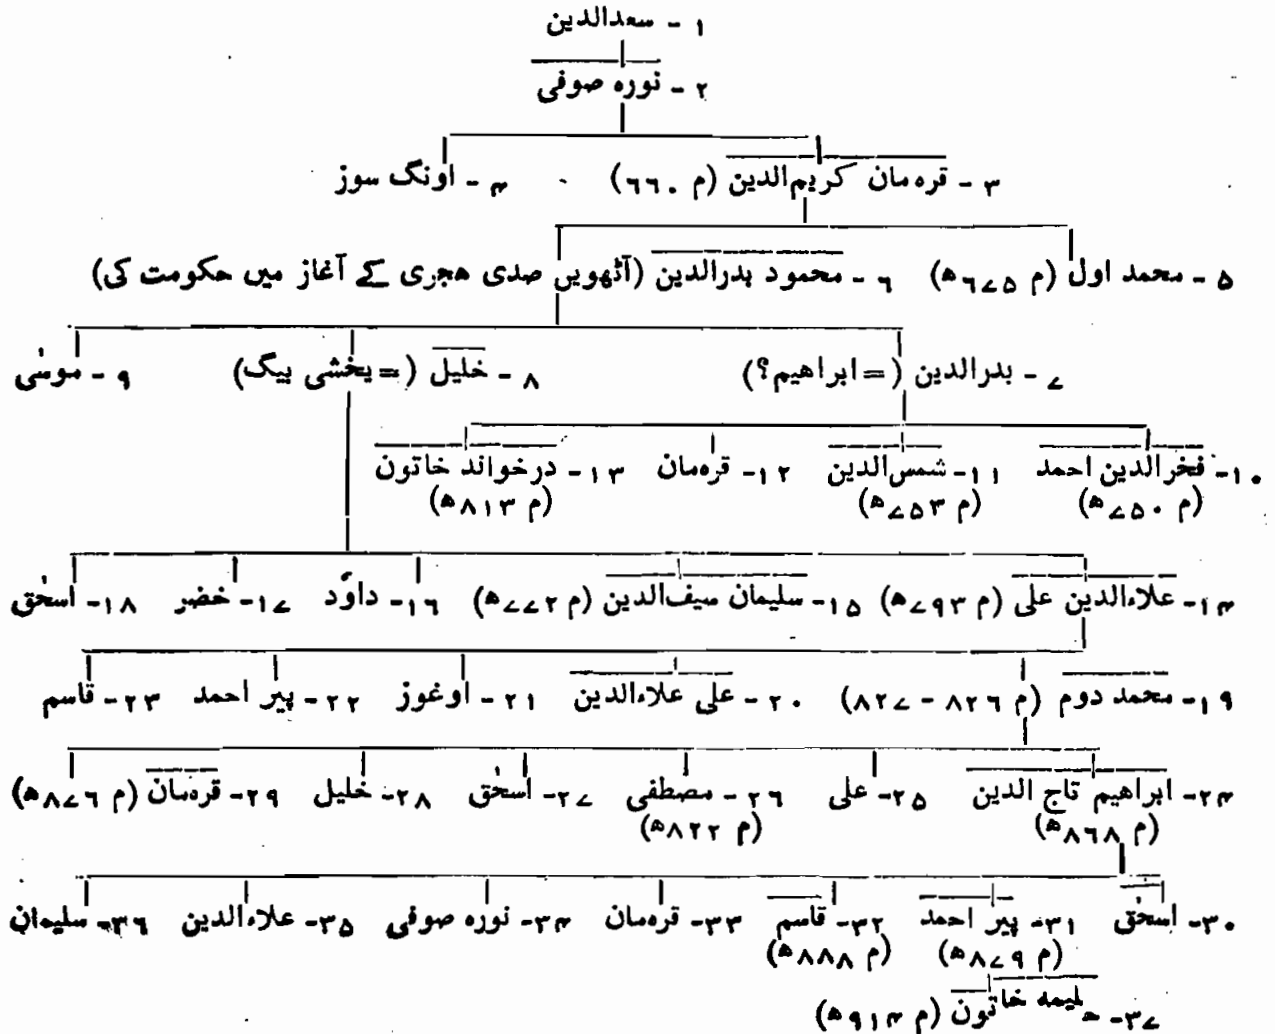 ۱ - سعدالدین
۲ - نوره صوفی
۳ - قره مان کریم‌الدین (م ۶۶۰) ۴ - اونگ سوز
۵ - محمد اول (م ۶۷۵ھ) ۶ - محمود بدرالدین (آٹھویں صدی ھجری کے آغاز میں حکومت کی)
۷ - بدرالدین (= ابراھیم؟) ۸ - خلیل (= یخشی بیگ) ۹ - موسٰی
۱۰- فخرالدین احمد ۱۱- شمس‌الدین ۱۲- قرہ‌مان ۱۳- درخواند خاتون
(م ۷۵۰ھ) (م ۷۵۳ھ) (م ۸۱۳ھ)
۱۴- علاءالدین علی (م ۷۹۳ھ) ۱۵- سلیمان سیف‌الدین (م ۷۷۲ھ) ۱۶- داؤد ۱۷- خضر ۱۸- اسحٰق
۱۹- محمد دوم (م ۸۲۶ - ۸۲۷) ۲۰- علی علاءالدین ۲۱- اوغوز ۲۲- پیر احمد ۲۳- قاسم
۲۴- ابراھیم تاج الدین ۲۵- علی ۲۶- مصطفٰی ۲۷- اسحٰق ۲۸- خلیل ۲۹- قرہ‌مان (م ۸۷۶ھ)
(م ۸۶۸ھ) (م ۸۲۲ھ)
۳۰- اسحٰق ۳۱- پیر احمد ۳۲- قاسم ۳۳- قرہ‌مان ۳۴- نوره صوفی ۳۵- علاءالدین ۳۶- سلیمان
(م ۸۷۹ھ) (م ۸۸۸ھ)
۳۷- حلیمه خاتون (م ۹۱۴ھ)